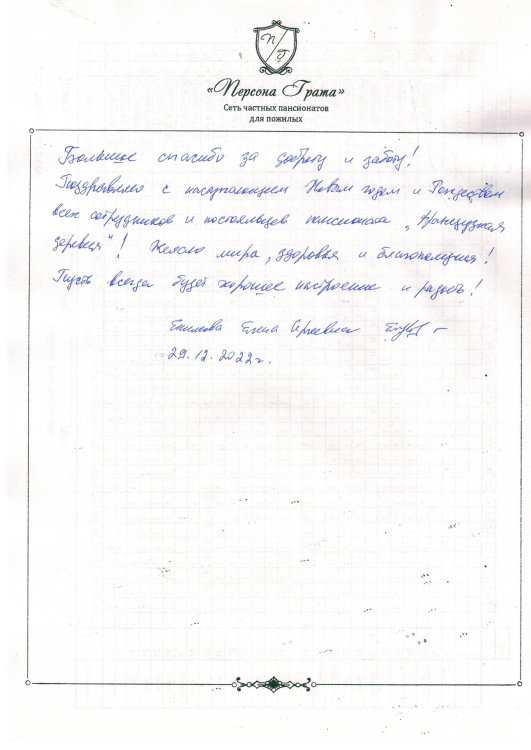 П/Г
«Персона Грата»
Сеть частных пансионатов
для пожилых
Большое спасибо за доброту и заботу!
Поздравляю с наступающим Новым годом и Рождеством
всех сотрудников и постояльцев пансионата „Французская
деревня"! Желаю мира, здоровья и благополучия!
Пусть всегда будет хорошее настроение и радость!
Елена Сергеевна
29.12.2022г.